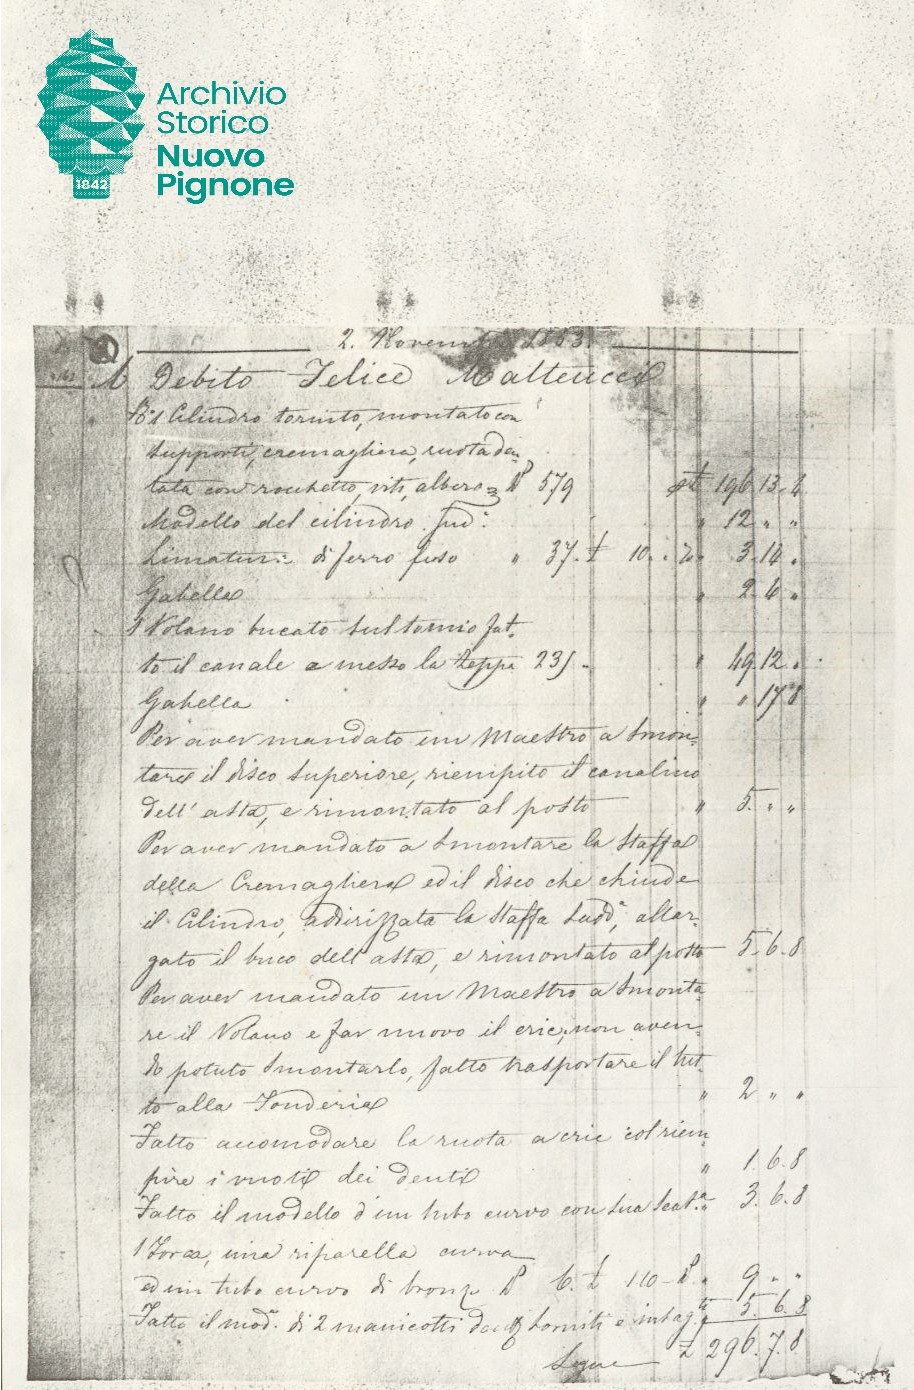 Archivio
Storico
Nuovo
Pignone
1842
2. Novembre 1853.
Debito Felice Matteucci
1 Cilindro tornito, montato con
supporti, cremagliera, ruota den-
tata con rocchetto, viti, albero 579 196 13. 4
Modello del cilindro sud.° " 12 " "
Limature di ferro fuso " 37. 10. 3. 14 "
Gabella " 2. 4 "
1 Volano bucato sul tornio fat-
to il canale a mezzo la zeppa 235 " 49. 12.
Gabella " " 17 8
Per aver mandato un Maestro a smon-
tare il disco superiore, riempito il canalino
dell' asta, e rimontato al posto " 5. " "
Per aver mandato a smontare la staffa
della Cremagliera ed il disco che chiude
il Cilindro, addirizzata la staffa sudd.a, allar-
gato il buco dell' asta, e rimontato al posto 5. 6. 8
Per aver mandato un Maestro a smonta-
re il Volano e far nuovo il cric, non aven-
do potuto smontarlo, fatto trasportare il tut-
to alla Fonderia " 2 " "
Fatto accomodare la ruota a cric col riem-
pire i vuoti dei denti " 1. 6. 8
Fatto il modello d'un tubo curvo con sua scat.a " 3. 6. 8
1 Forca, una riparella curva
ed un tubo curvo di bronz. 6. 110 " 9 " "
Fatto il mod. di 2 manicotti torniti e 5. 6. 8
Segue £ 296. 7. 8